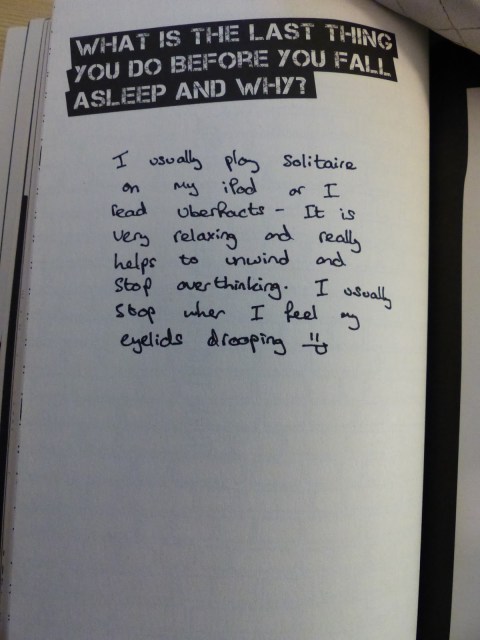 WHAT IS THE LAST THING
YOU DO BEFORE YOU FALL
ASLEEP AND WHY?
I usually play Solitaire
on my iPod or I
read uberfacts - It is
very relaxing and really
helps to unwind and
stop overthinking. I usually
stop when I feel my
eyelids drooping =)